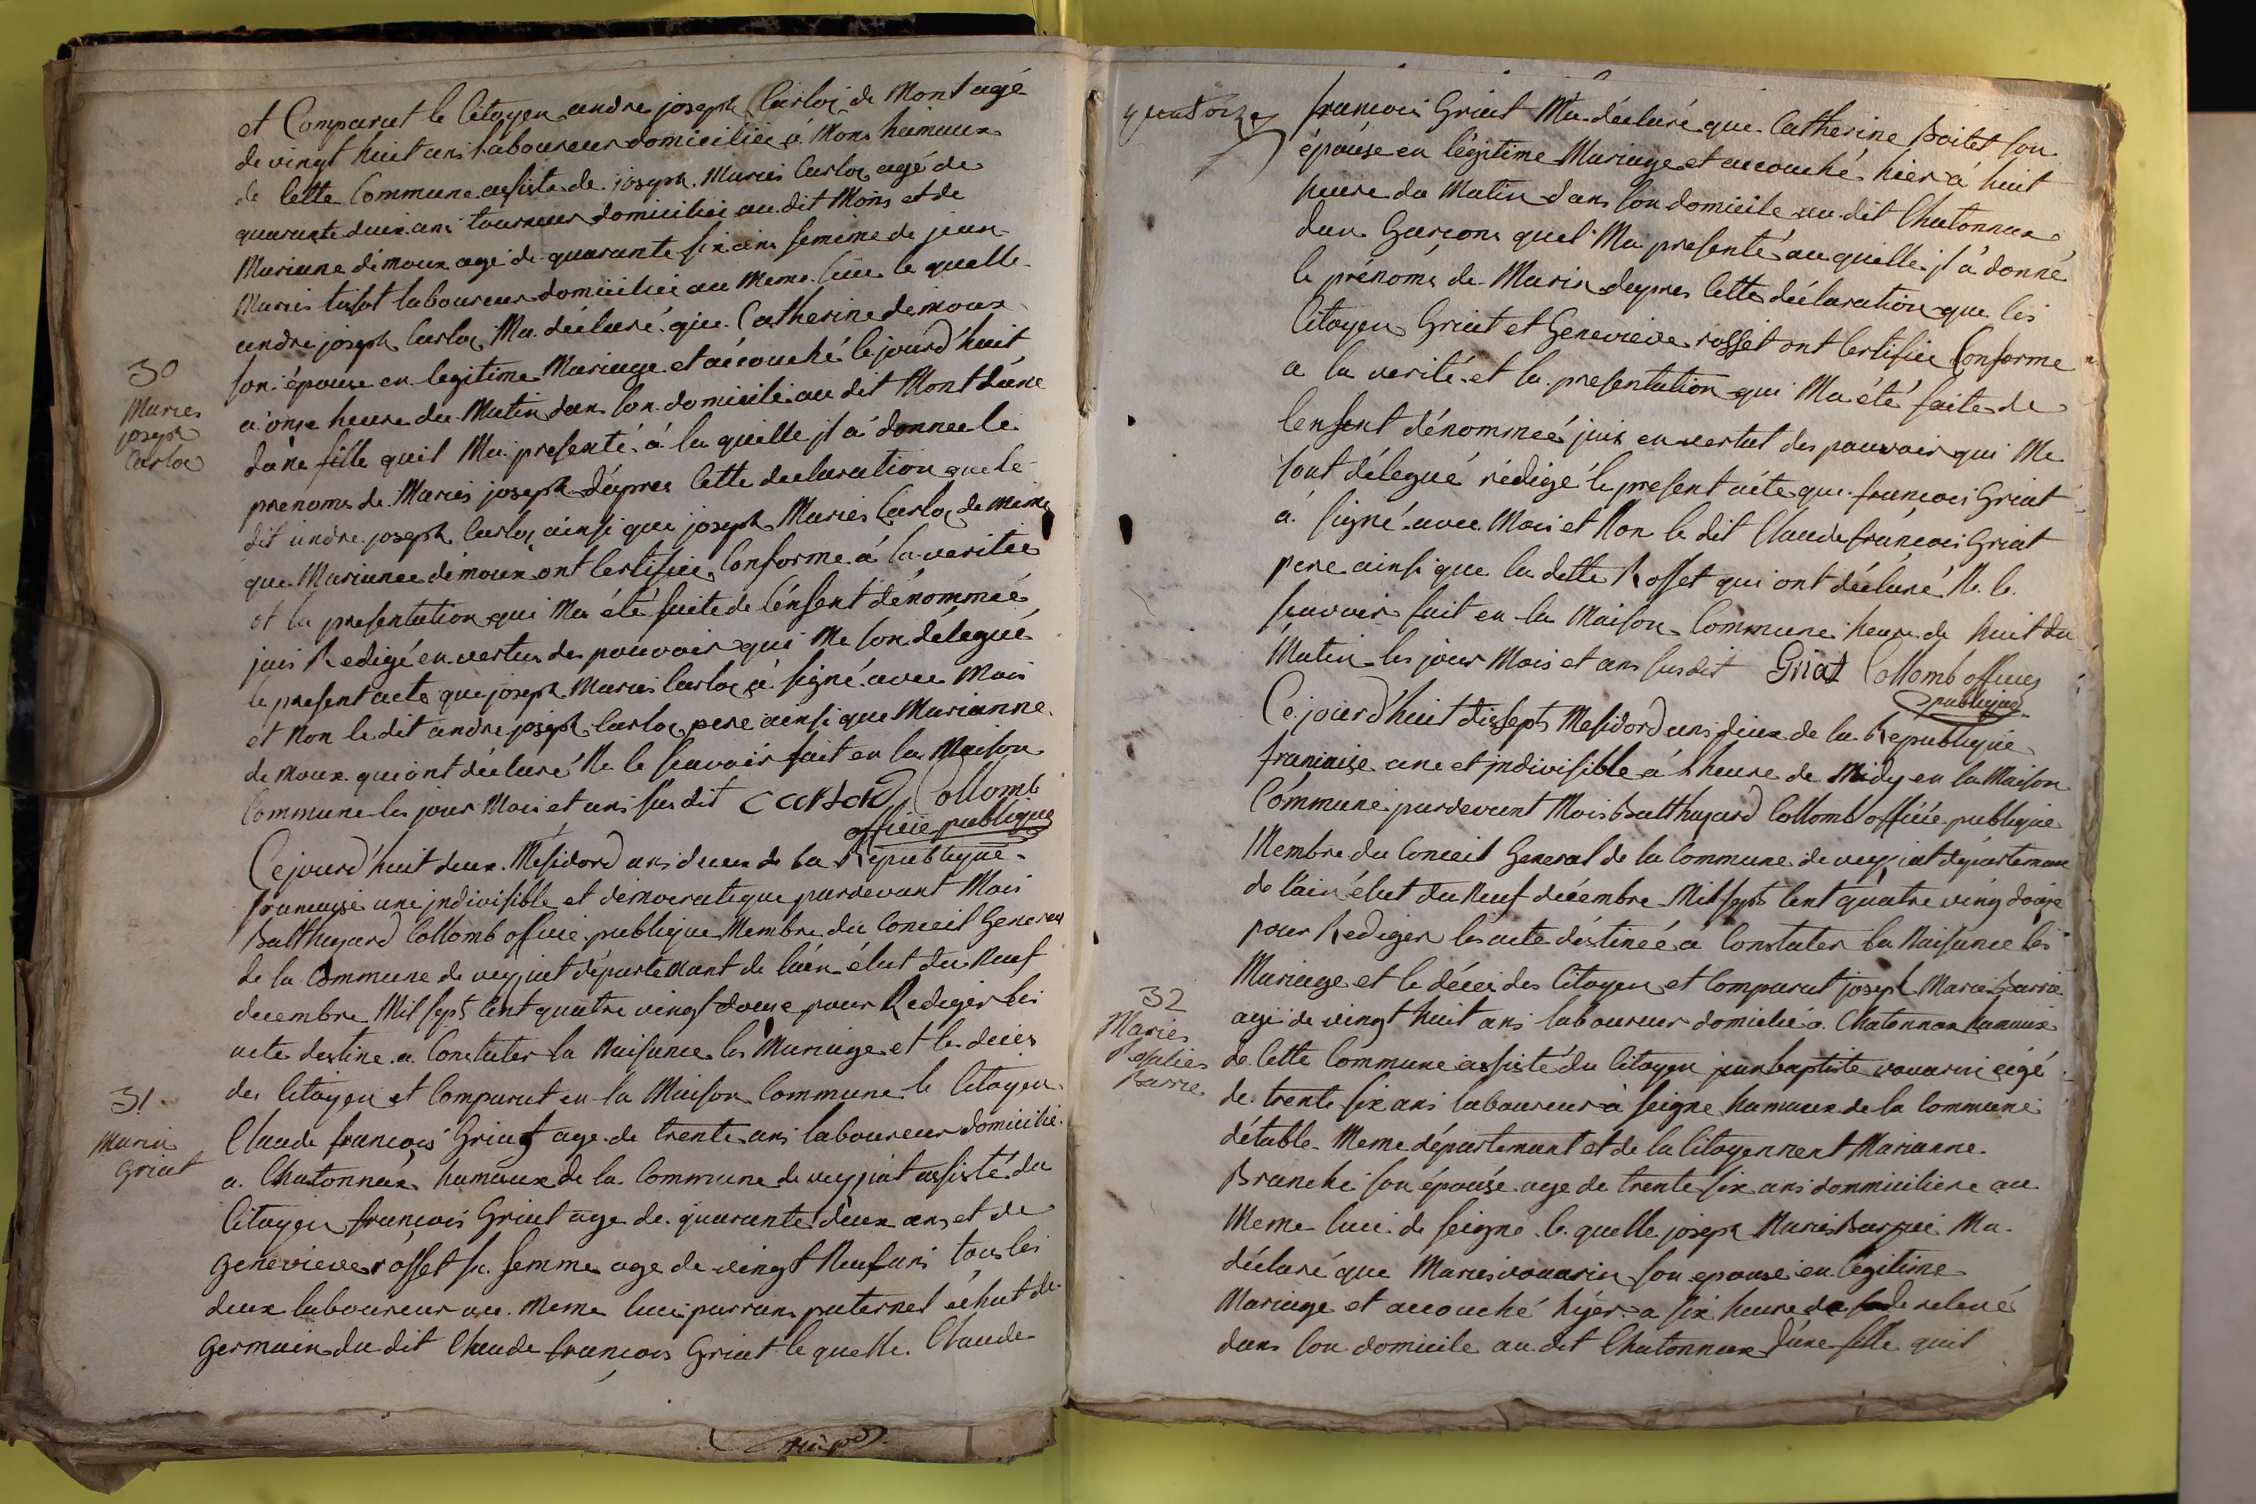 et Comparut le Citoyen andre joseph Carloz de Mont agé
de vingt huit ans laboureur domiciliée á Mons hamaux
de Cette Commune assiste de joseph Maries Carloz agé de
quarante deux ans tourneur domiciliée au dit Mons et de
Mariane dimoux agé de quarante six ans femme de jean
Maries tissot laboureur domiciliée au Meme lieu le quelle
andre joseph Carloz Ma déclaré que Catherine demoux
son épouse en legitime Mariage et accouché le jourd'huit
a onze heure du Matin dans son domicile au dit Mont
30
Maries
joseph
Carloz
d'une fille quil Ma presenté á la quelle jl á donnee le
prenoms de Maries joseph d'apres Cette declaration que le
dit andre joseph Carloz ainsi que joseph Maries Carloz de meme
que Marianee dimoux ont Certifiée Conforme á la veritée
et la presentation qui Ma été faite de l'enfent dénommée
jais Redigé en vertus des pouvoir qui Me son délegué
le present acte que joseph Maries Carloz á signé avec Mois
et Non le dit andre joseph Carloz pere ainsi que Marianne
de Moux qui ont déclaré Ne le scavoir fait en la Maison
Commune les jour Mois et ans susdit Carloz Collomb
officie publique
Ce jourd'huit deux Mesidord ans deux de la Republique
francaise une jndivisible et démocratique pardevant Mois
Balthazard Collomb officie publique Membre du Conceil General
de la Commune de veyziat département de lain élut du Neuf
decembre Mil sept Cent quatre vingt douze pour Rediger les
acte destine a Constater la Naisance les Mariage et le deces
des Citoyen et Comparut en la Maison Commune le Citoyen
31
Marin
Griat
Claude francois Griat age de trente ans laboureur domicilié
a Chatonnax hamaux de la Commune de veyziat assisté du
Citoyen francois Griat age de quarante deux ans et de
Genevieve rosset sa femme age de vingt Neuf ans tous les
deux laboureur au Meme lieu parrain paternel
Germain du dit Claude francois Griat le quelle Claude
quatorze
francois Griat Ma déclaré que Catherine Poitet son
épouse en légitime Mariage et accouché hier á huit
heure du Matin dans son domicile au dit Chatonnax
d'un Garçons quel Ma presenté au quelle jl á donné
le prénoms de Marin d'apres Cette déclaration que les
Citoyen Griat et Genevieve rosset ont Certifiée Conforme
a la verité et la presentation qui Ma été faite de
lenfent dénommeé jais en vertut des pouvoir qui Me
sont délegué rédigé le present acte que francois Griat
á signé avec Mois et Non le dit Claude francois Griat
pere ainsi que la dette Rosset qui ont déclaré Ne le
scavoir fait en la Maison Commune heure de huit du
Matin les jour Mois et ans susdit Griat Collomb officie
publique
Ce jourd'huit dissept Mesidord ans deux de la Republique
francaise une et jndivisible á l'heure de Midy en la Maison
Commune pardevant Mois Balthazard Collomb officie publique
Membre du Conceil General de la Commune de veyziat département
de lain élut du Neuf décembre Mil sept Cent quatre ving douze
pour Rediger les acte déstinéé a Constater la Naisance les
Mariage et le décés des Citoyen et Comparut joseph Maries Barrie
32
Maries
Barrie
agé de vingt huit ans laboureur domicilié a Chatonnax hamaux
de Cette Commune assisté du Citoyen jean baptiste vouarin agé
de trente six ans laboureur á seigne hamaux de la Commune
détable Meme département et de la Citoyennent Marianne
Branche son épouse age de trente six ans dommiciliere au
Meme lieu de seigne le quelle joseph Maries Barrie Ma
déclaré que Maries vouarin son epouse en légitime
Mariage et accouché hyer a six heure de relevé
dans son domicile au dit Chatonnax d'une fille quil